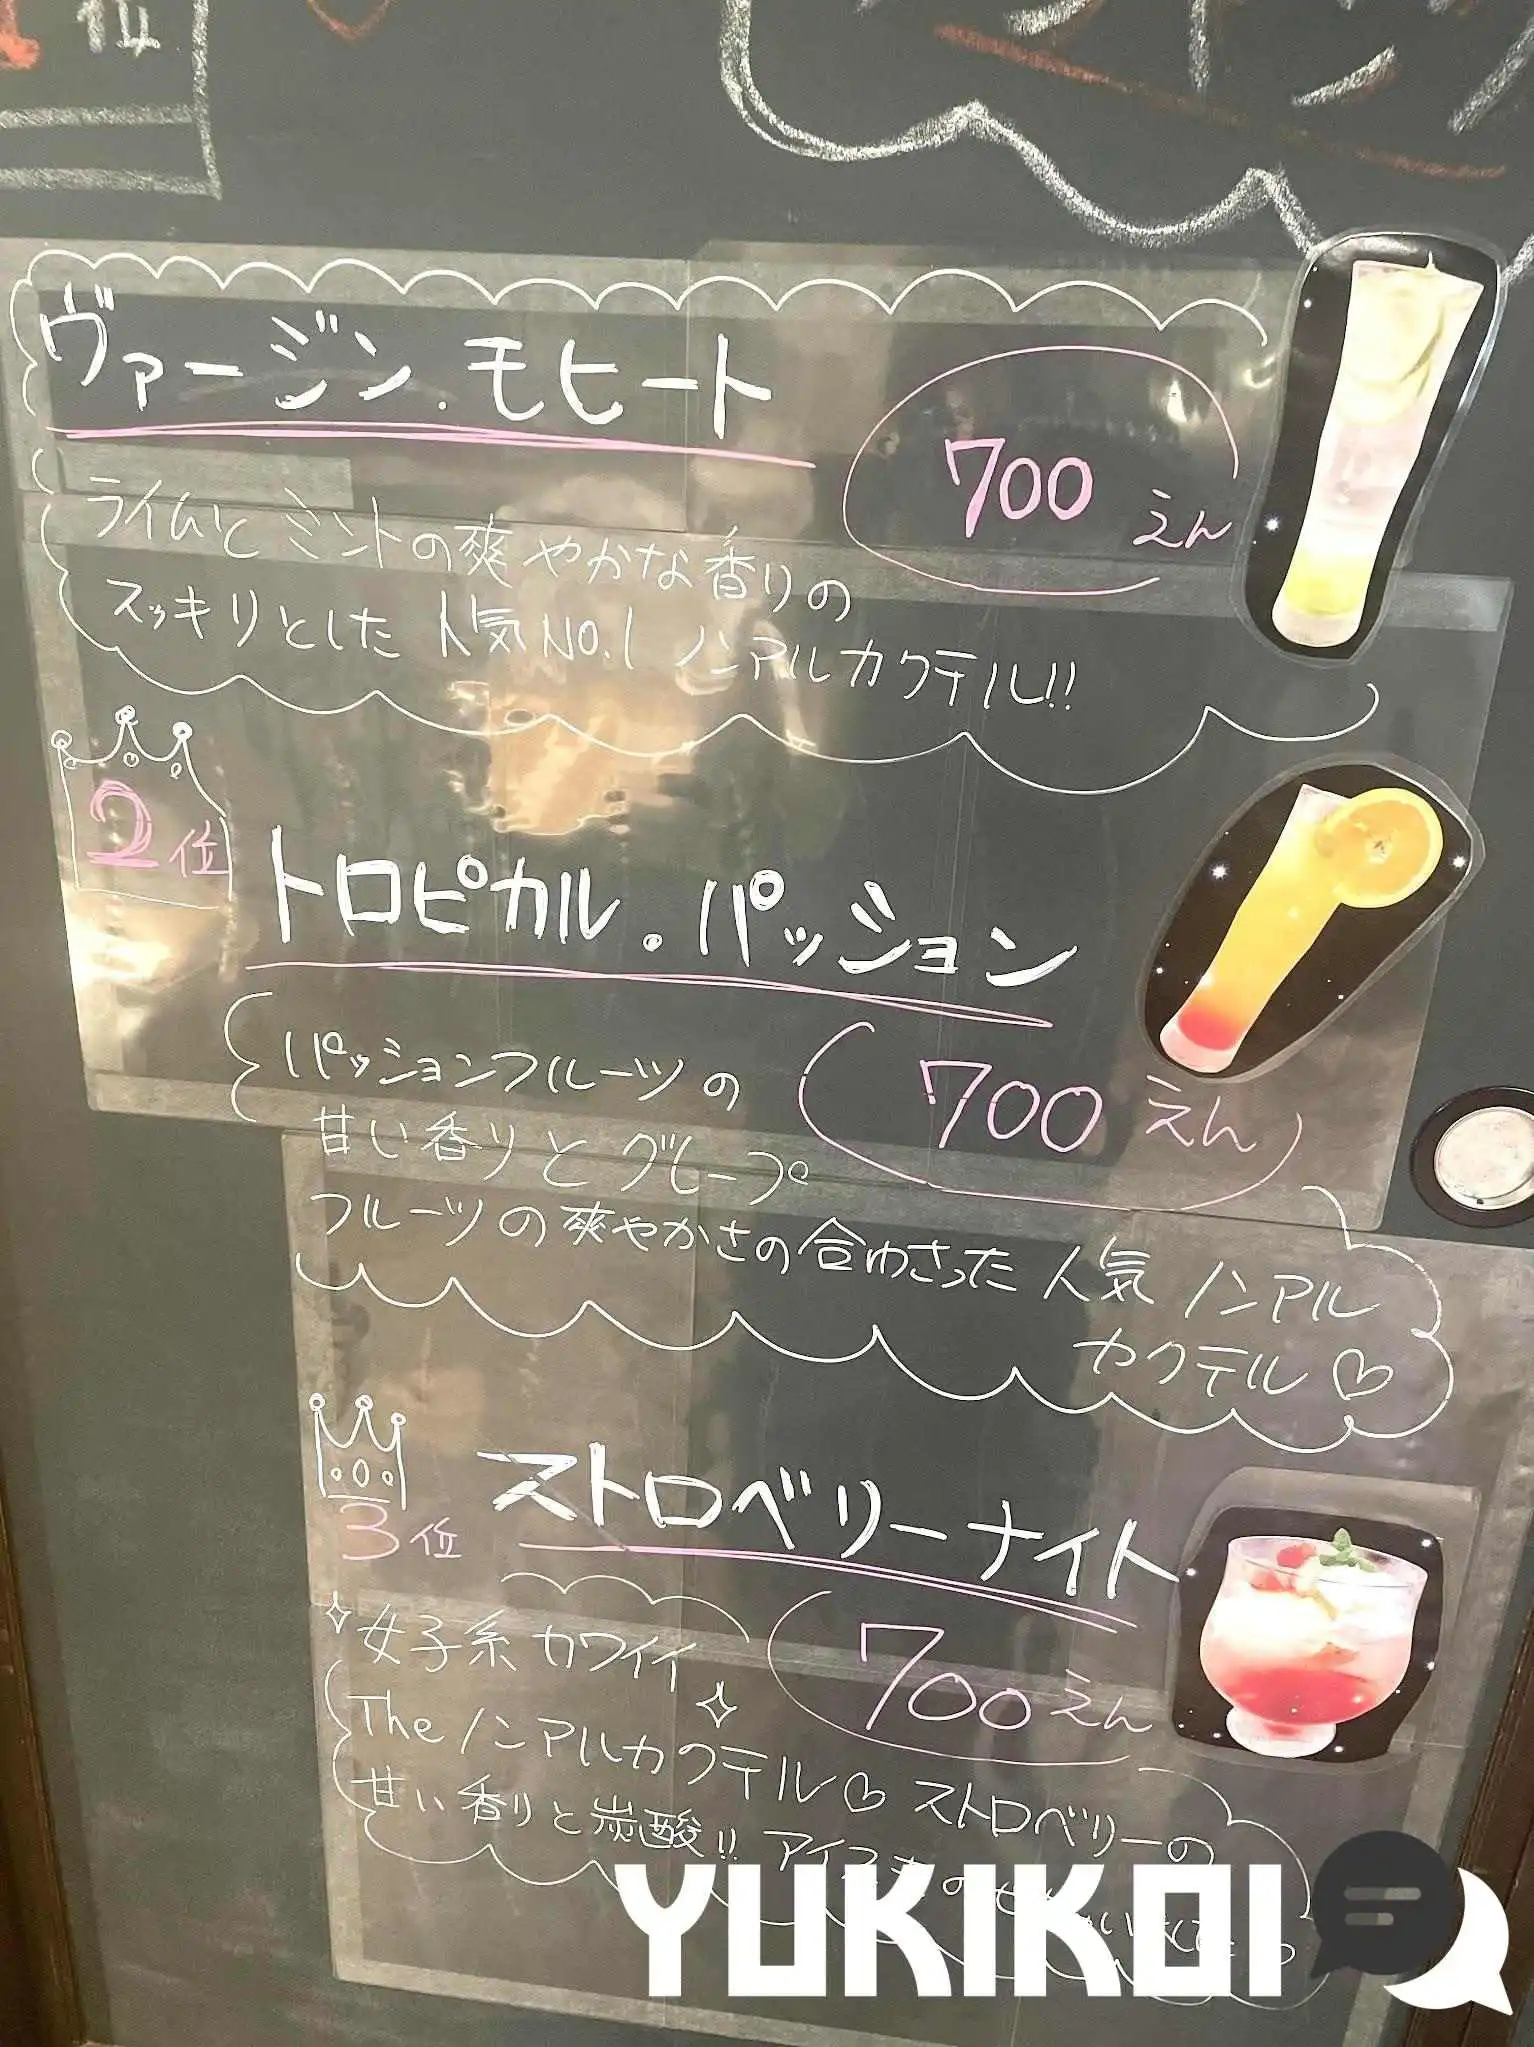 位
ヴァージン.モヒート
700 えん
ライムとミントの爽やかな香りの
スッキリとした人気NO.1 ノンアルカクテル!!
2位
トロピカル.パッション
700 えん
パッションフルーツの
甘い香りとグレープ
フルーツの爽やかさの合わさった人気 ノンアル
カクテル♡
3位
ストロベリーナイト
700 えん
女子系カワイイ
Theノンアルカクテル♡ ストロベリーの
甘い香りと炭酸!! アイス
YUKIKOI